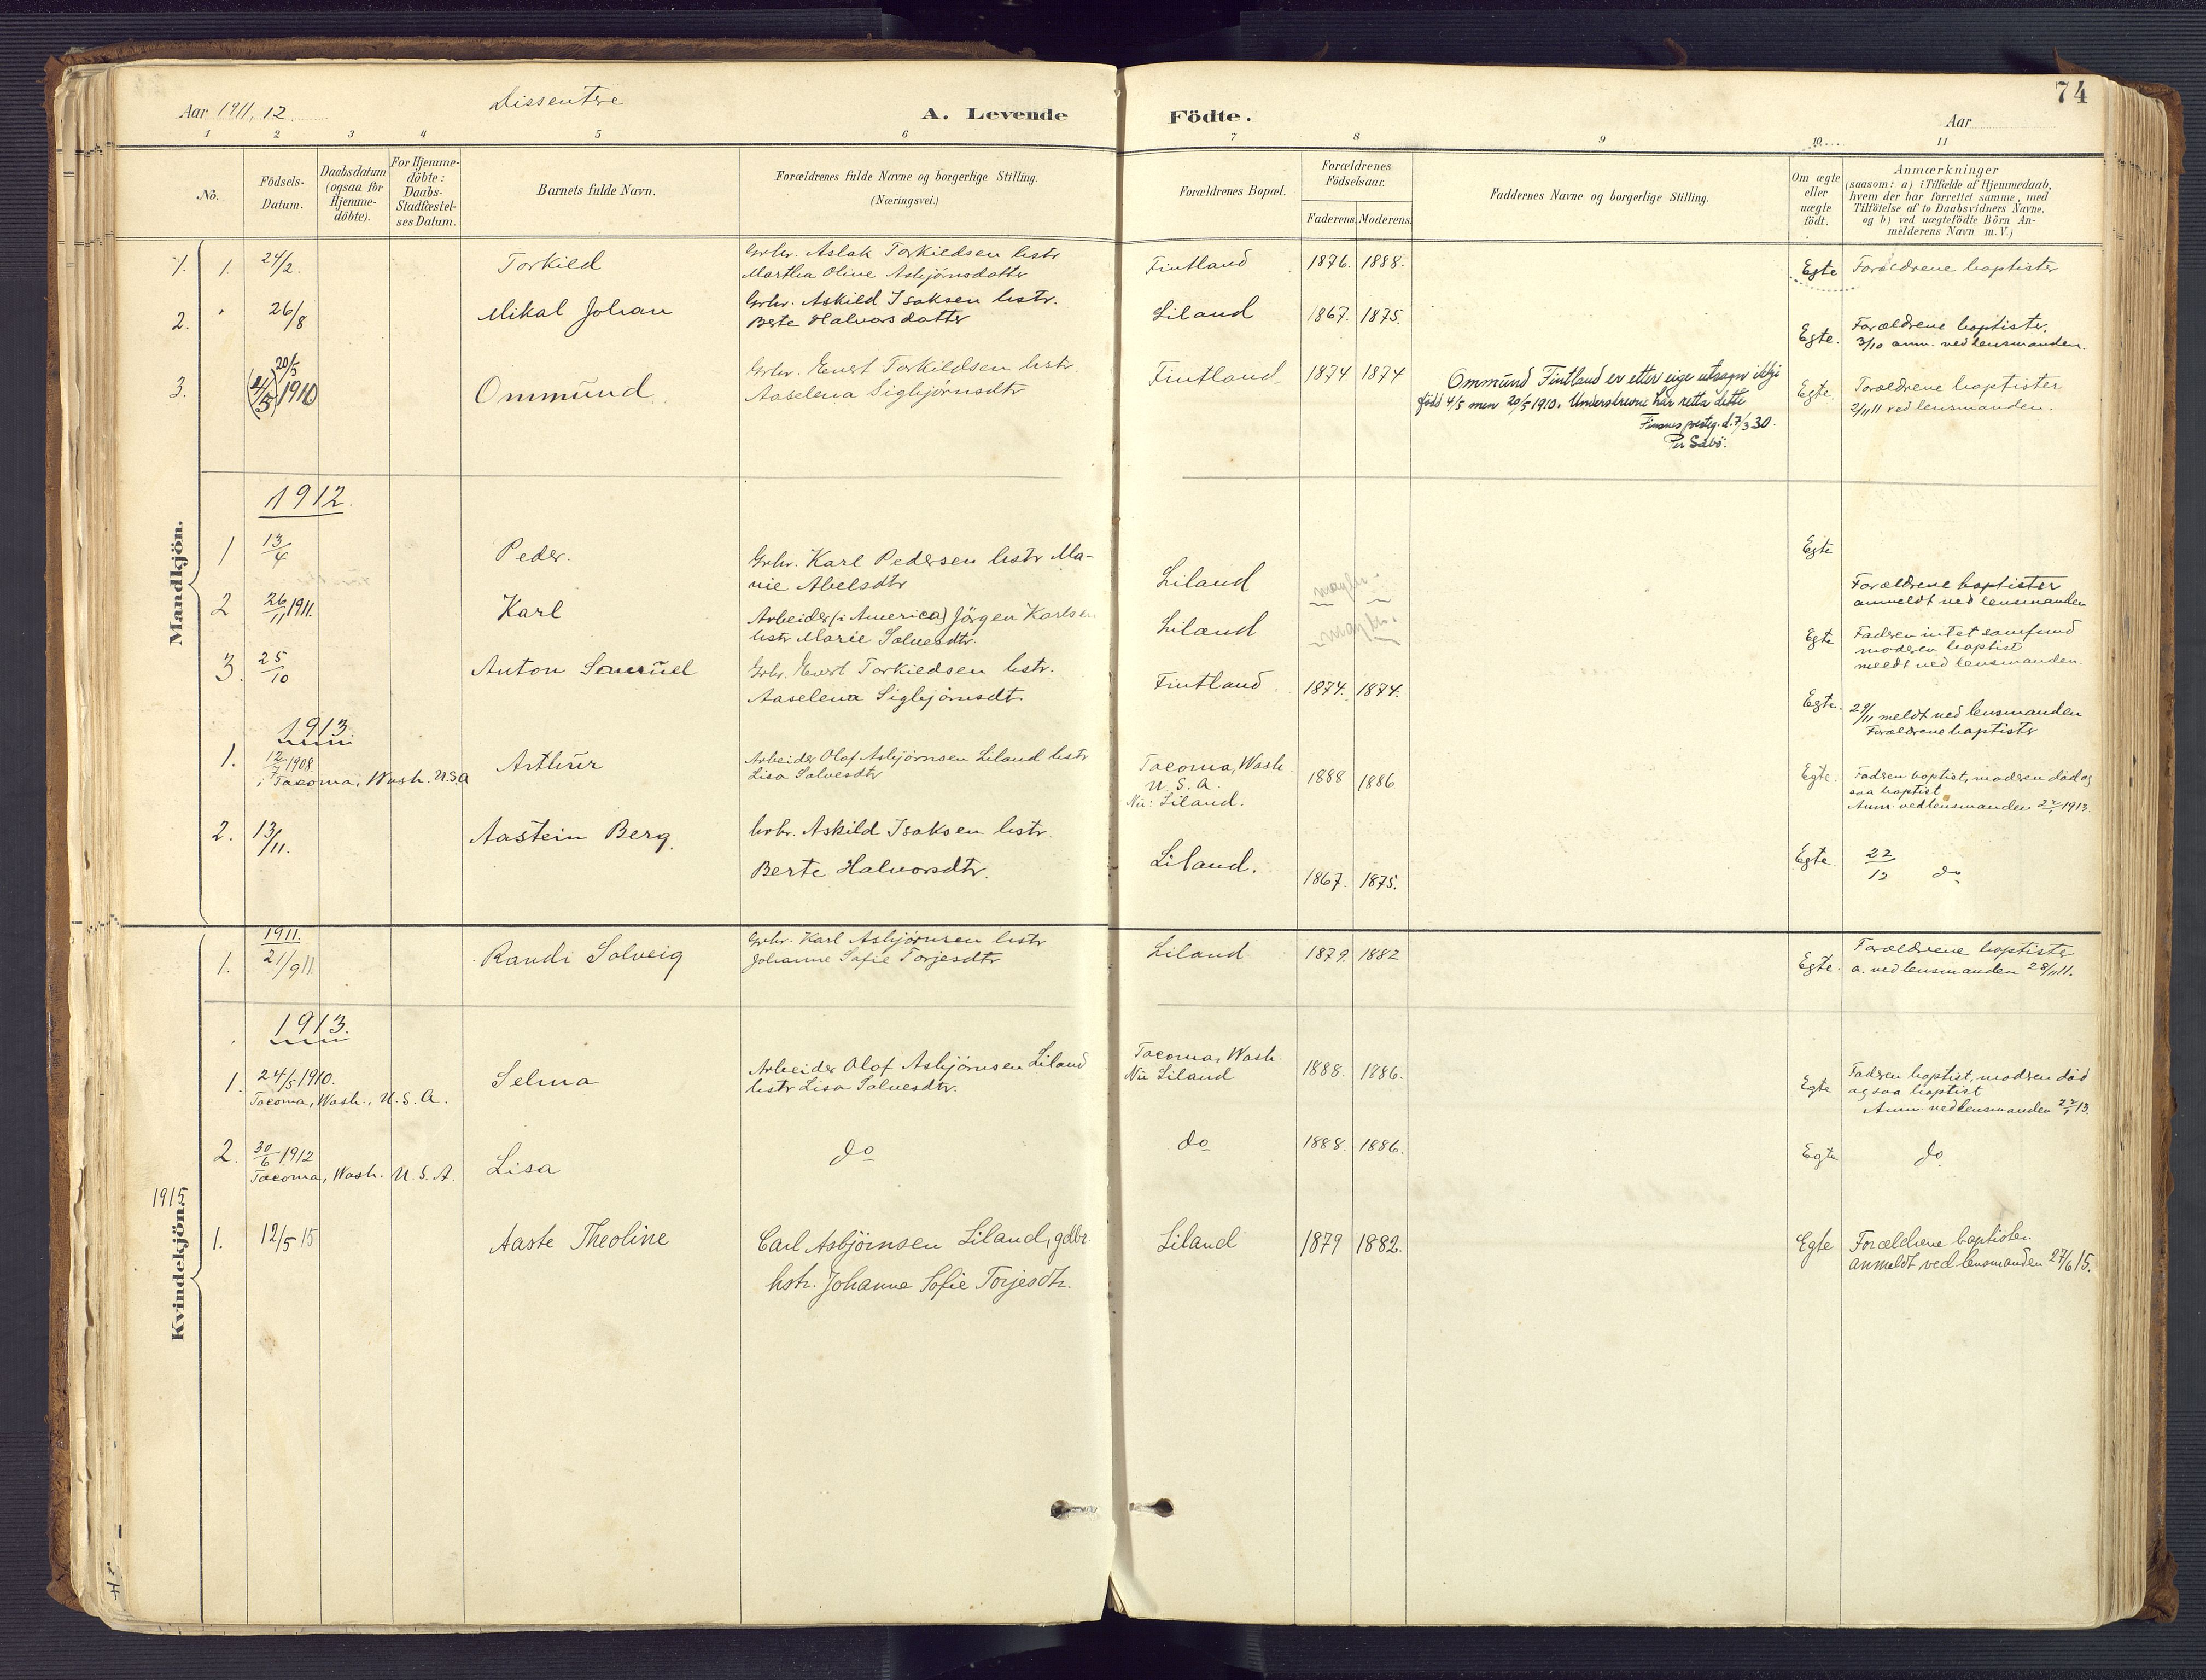 74
Aar 1911, 12
Dissentere
A. Levende Födte.
Aar
1 2 3 4 5 6 7 8 9 10 11
No.
Födsels-Datum.
Daabsdatum (ogsaa for Hjemme-döbte).
For Hjemme-döbte: Daabs-Stadfæstel-ses Datum.
Barnets fulde Navn.
Forældrenes fulde Navne og borgerlige Stilling.
(Næringsvei.)
Forældrenes Bopæl.
Forældrenes Födselsaar.
Faderens. Moderens.
Faddernes Navne og borgerlige Stilling.
Om ægte eller uægte födt.
Anmærkninger
(saasom: a) i Tilfælde af Hjemmedaab,
hvem der har forrettet samme, med
Tilföielse af to Daabsvidners Navne.
og b) ved uægtefödte Börn An-
melderens Navn m. V.)
Mandkjön.
1. 1. 24/2. Torkild
Grbr. Aslak Torkildsen hstr
Martha Oline Asbjörnsdatter
Fintland 1876. 1888. Egte Forældrene baptister
2. 26/8 Mikal Johan
Grbr. Askild Isaksen hstr.
Berte Halvorsdatter
Liland 1867. 1875. Egte.
Forældrene baptister.
3/10 anm. ved lensmanden.
3. (4/5) 20/5 1910 Ommund
Grbr. Evert Torkildsen hstr.
Aaselena Sigbjørnsdtr
Fintland 1874. 1874
Ommund Fintland er etter eige utsagn ikkje
född 4/5 men 20/5 1910. Underskrevne har retta dette
d. 7/3 30.
Per
Egte.
Forældrene baptister
2/11 11 ved lensmanden.
1912.
1 13/4 Peder.
Grbr. Karl Pedersen hstr Ma-
rie Abelsdtr
Liland Egte
Forældrene baptister
anmeldt ved lensmanden
2 26/11 1911. Karl
Arbeider (i America) Jörgen Karlsen
hstr Marie Salvesdtr.
Liland Egte
Fadren intet samfund
modren baptist
meldt ved lensmanden.
3. 25/10 Anton Samuel
Grbr. Evert Torkildsen hstr.
Aaselena Sigbjörnsdtr
Fintland 1874. 1874. Egte.
29/11 meldt ved lensmanden
Forældrene baptister
1913.
1. 12/7 1908.
i Tacoma, Wash. U.S.A
Arthur
Arbeider Olaf Asbjörnsen Liland hstr
Lisa Salvesdtr
Tacoma, Wash.
U. S. A.
Nu: Liland.
1888 1886. Egte.
Fadren baptist, modren död og
saa baptist
Anm. ved lensmanden 1913.
2. 13/11. Aastein Berg.
Grbr. Askild Isaksen hstr.
Berte Halvorsdtr.
Liland. 1867. 1875. Egte. 22/12 do
Kvindekjön.
1911.
1. 21/9 11. Randi Solveig
Grbr. Karl Asbjörnsen hstr
Johanne Sofie Torjesdtr
Liland 1879. 1882 Egte.
Forældrene baptister
a. ved lensmanden 28/11 11.
1913.
1. 24/5 1910.
Tacoma, Wash., U. S. A.
Selma
Arbeider Olaf Asbjörnsen Liland
hstr Lisa Salvesdtr.
Tacoma, Wash.
Nu Liland
1888. 1886. Egte
Fadren baptist, modren död
ogsaa baptist
Anm. ved lensmanden 13.
2. 30/6 1912
Tacoma, Wash. U. S. A.
Lisa do do 1888. 1886. Egte do
1915
1. 12/5 15 Aaste Theoline
Carl Asbjørnsen Liland, gdbr.
hstr. Johanne Sofie Torjesdtr.
Liland 1879 1882. Egte
Forældrene baptister.
anmeldt ved lensmanden 27/6 15.